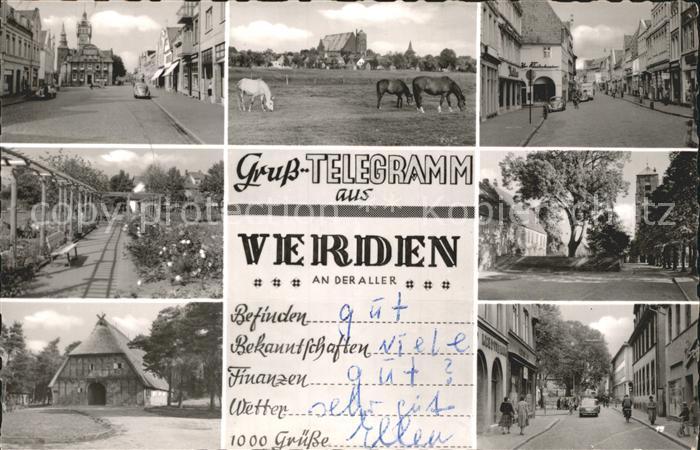 Gruß-TELEGRAMM
aus
VERDEN
AN DER ALLER
Befinden gut
Bekanntschaften viele
Finanzen gut?
Wetter sehr gut
1000 Grüße Ellen